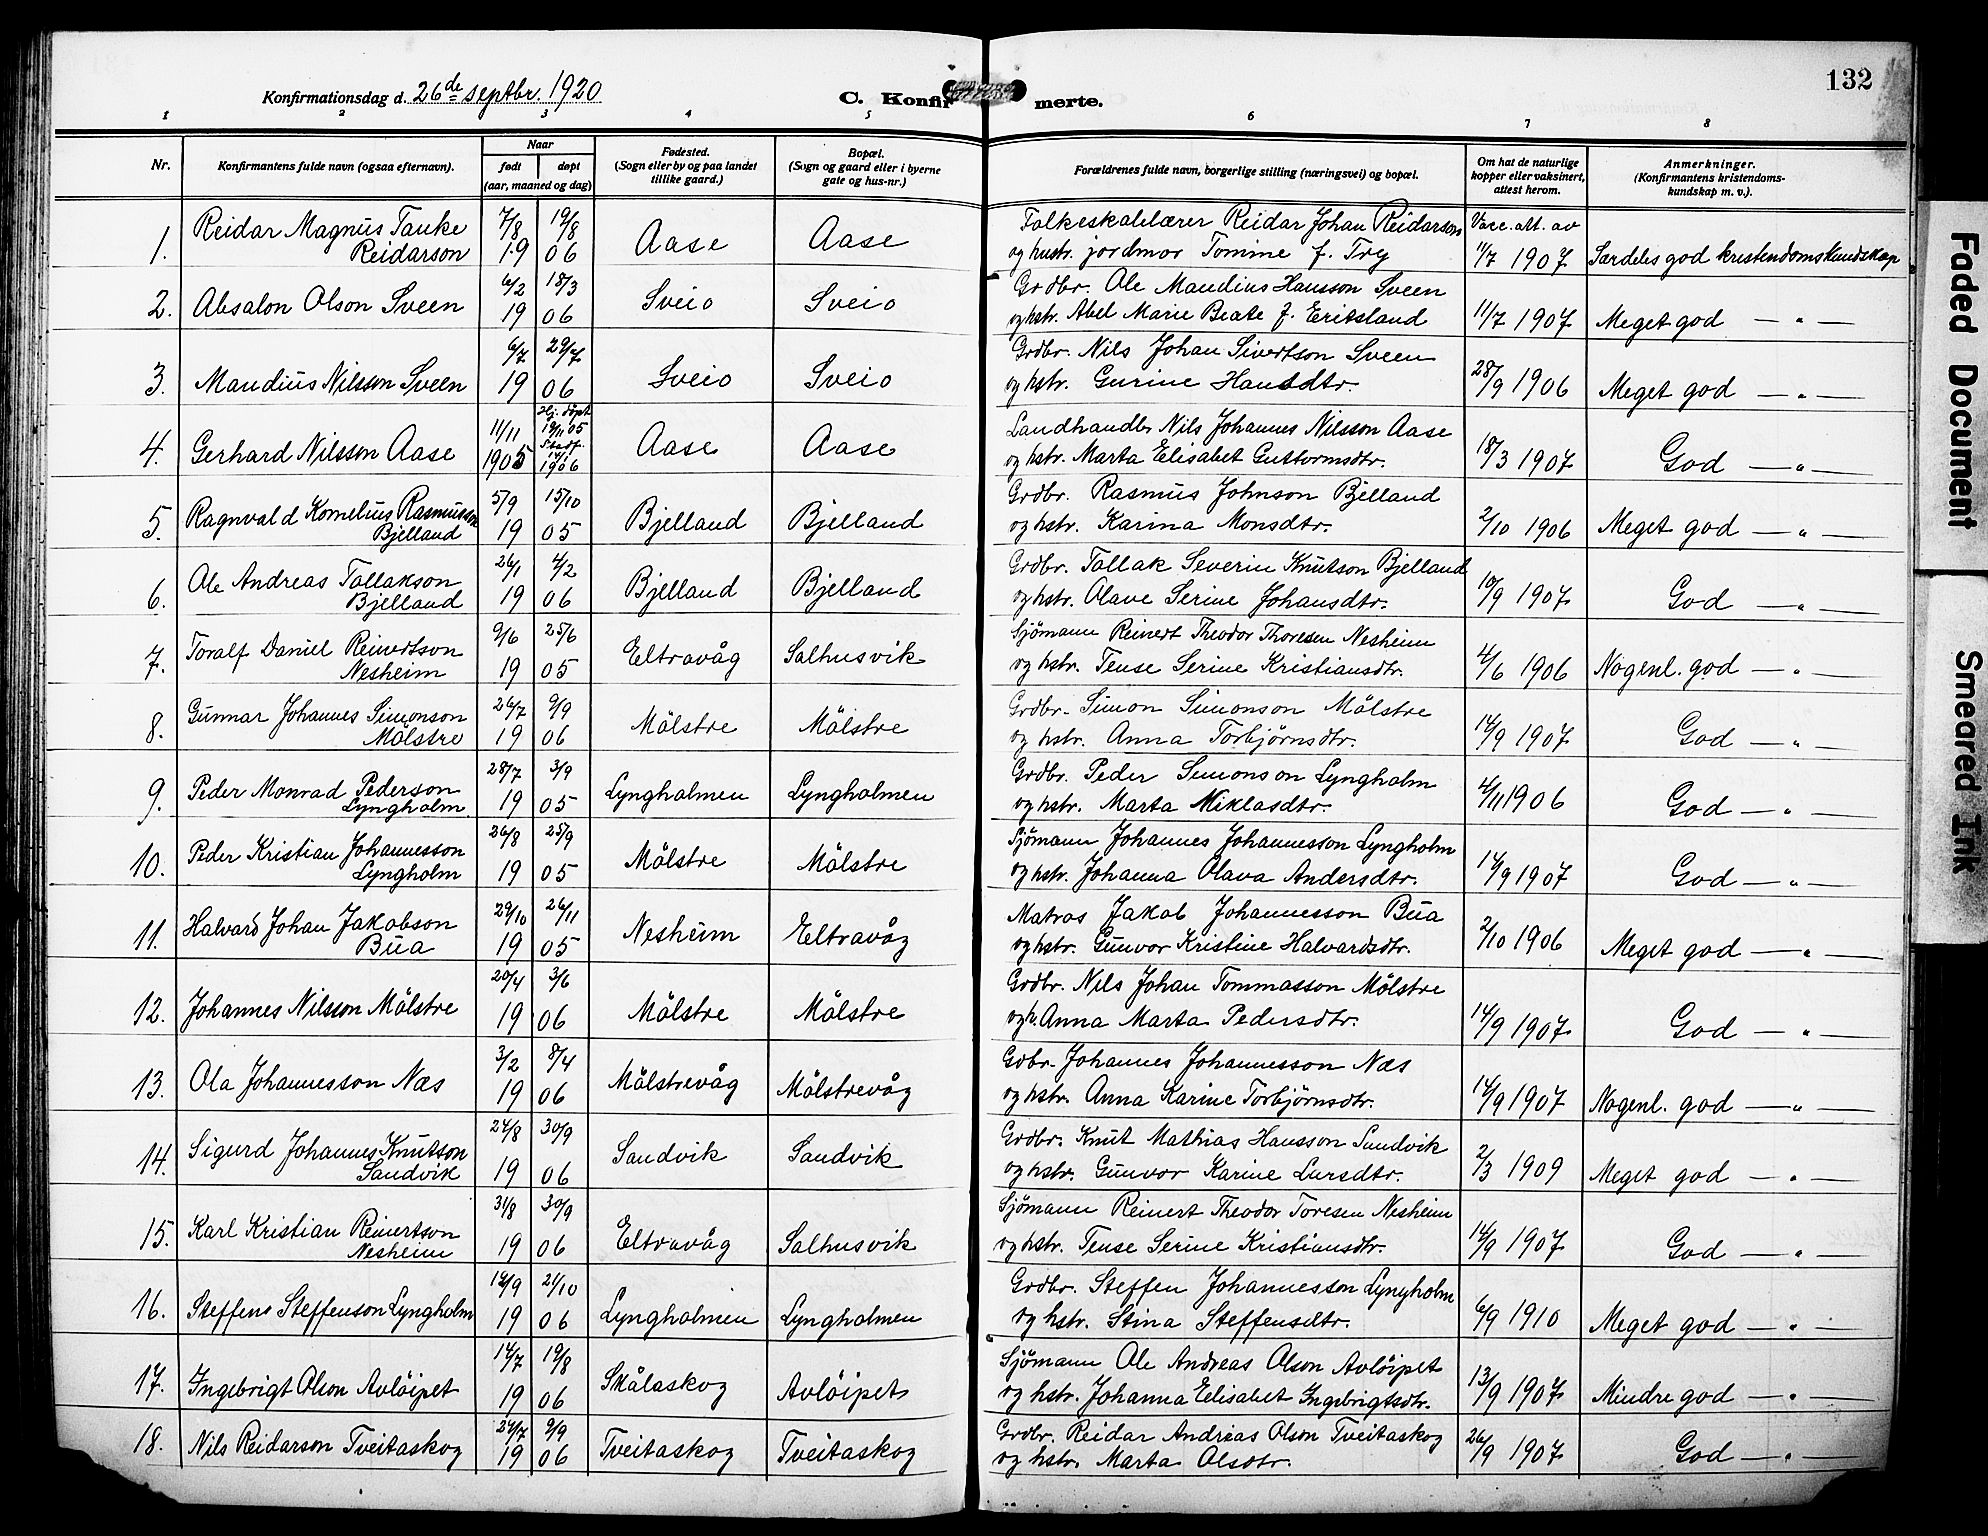 132
Konfirmationsdag d. 26de septbr. 1920
C. Konfirmerte.
1 2 3 4 5 6 7 8
Nr.
Konfirmantens fulde navn (ogsaa efternavn).
Naar
født
døpt
(aar, maaned og dag)
Fødested.
(Sogn eller by og paa landet
tillike gaard.)
Bopæl.
(Sogn og gaard eller i byerne
gate og hus-nr.)
Forældrenes fulde navn, borgerlige stilling (næringsvei) og bopæl.
Om hat de naturlige
kopper eller vaksinert,
attest herom.
Anmerkninger.
(Konfirmantens kristendoms-
kundskap m. v.).
Reidar Magnus Tauke 7/8 19/8 Folkeskolelærer Reidar Johan Reidarson Vacc. att. av
1. Reidarson 19 06 Aase Aase og hustr. jordmor Tomine f. Try 11/7 1907 Særdeles god kristendomskundskap
6/2 18/3 Grdbr. Ole Maudius Hansson Sveen
2. Absalon Olson Sveen 19 06 Sveio Sveio og hstr. Abel Marie Beate f. Eritsland 11/7 1907 Meget god — " —
6/7 29/7 Grdbr. Nils Johan Sivertson Sveen
3. Maudius Nilsson Sveen 19 06 Sveio Sveio og hstr. Gurine Hansdtr. 28/9 1906 Meget god — " —
11/11 Hj. döpt 19/11 05 Stadf. Landhandler Nils Johannes Nilsson Aase
4. Gerhard Nilsson Aase 1905 14/1 1906 Aase Aase og hstr. Marta Elisabet Guttormsdtr. 18/3 1907 God — " —
Ragnvald Kornelius Rasmusson 5/9 15/10 Grdbr. Rasmus Johnson Bjelland
5. Bjelland 19 05 Bjelland Bjelland og hstr. Karina Monsdtr. 2/10 1906 Meget god — " —
Ole Andreas Tollakson 26/1 4/2 Grdbr. Tollak Severin Knutson Bjelland
6. Bjelland 19 06 Bjelland Bjelland og hstr. Olave Serine Johansdtr. 10/9 1907 God — " —
Toralf Daniel Reinertson 9/6 25/6 Sjömann Reinert Theodor Thoresen Nesheim
7. Nesheim 19 05 Eltravåg Salhusvik og hstr. Tense Serine Kristiansdtr. 4/6 1906 Nogenl. god — " —
Gunnar Johannes Simonson 26/7 9/9 Grdbr. Simon Simonson Mölstre
8. Mölstre 19 06 Mölstre Mölstre og hstr. Anna Torbjørnsdtr. 14/9 1907 God — " —
Peder Monrad Pederson 28/7 3/9 Grdbr. Peder Simonson Lyngholm
9. Lyngholm. 19 05 Lyngholmen Lyngholmen og hstr. Marta Niklasdtr. 4/11 1906 God — " —
Peder Kristian Johannesson 26/8 25/9 Sjömann Johannes Johannesson Lyngholm
10. Lyngholm 19 05 Mölstre Mölstre og hstr. Johanna Olava Andersdtr. 14/9 1907 God — " —
Halvard Johan Jakobson 29/10 26/11 Matros Jakob Johannesson Bua
11. Bua 19 05 Nesheim Eltravåg og hstr. Gunvor Kristine Halvardsdtr. 2/10 1906 Meget god — " —
20/4 3/6 Grdbr. Nils Johan Tommasson Mölstre
12. Johannes Nilsson Mölstre 19 06 Mölstre Mölstre og h. Anna Marta Pedersdtr. 14/9 1907 God — " —
3/2 8/4 Gdbr. Johannes Johannesson Næs
13. Ola Johannesson Næs 19 06 Mölstrevåg Mölstrevåg og hstr. Anna Karine Torbjørnsdtr. 14/9 1907 Nogenl. god — " —
Sigurd Johannes Knutson 24/8 30/9 Grdbr. Knut Mathias Hansson Sandvik
14. Sandvik 19 06 Sandvik Sandvik og hstr. Gunvor Karine Larsdtr. 2/3 1909 Meget god — " —
Karl Kristian Reinertson 31/8 30/9 Sjömann Reinert Theodor Toresen Nesheim
15. Nesheim 19 06 Eltravåg Salhusvik og hstr. Tense Serine Kristiansdtr. 14/9 1907 God — " —
14/9 21/10 Grdbr. Steffen Johannesson Lyngholm
16. Steffens Steffenson Lyngholm 19 06 Lyngholmen Lyngholmen og hstr. Stina Steffensdtr. 6/9 1910 Meget god — " —
14/7 19/8 Sjömann Ole Andreas Olson Avlöipet
17. Ingebrigt Olson Avlöipet 19 06 Skålaskog Avlöipet og hstr. Johanna Eelisabet Ingebrigtsdtr. 13/9 1907 Mindre god — " —
24/7 9/9 Grdbr. Reidar Andreas Olson Tveitaskog
18. Nils Reidarson Tveitaskog 19 06 Tveitaskog Tveitaskog og hstr. Marta Olsdtr. 26/9 1907 God — " —
Faded Document
Smeared Ink